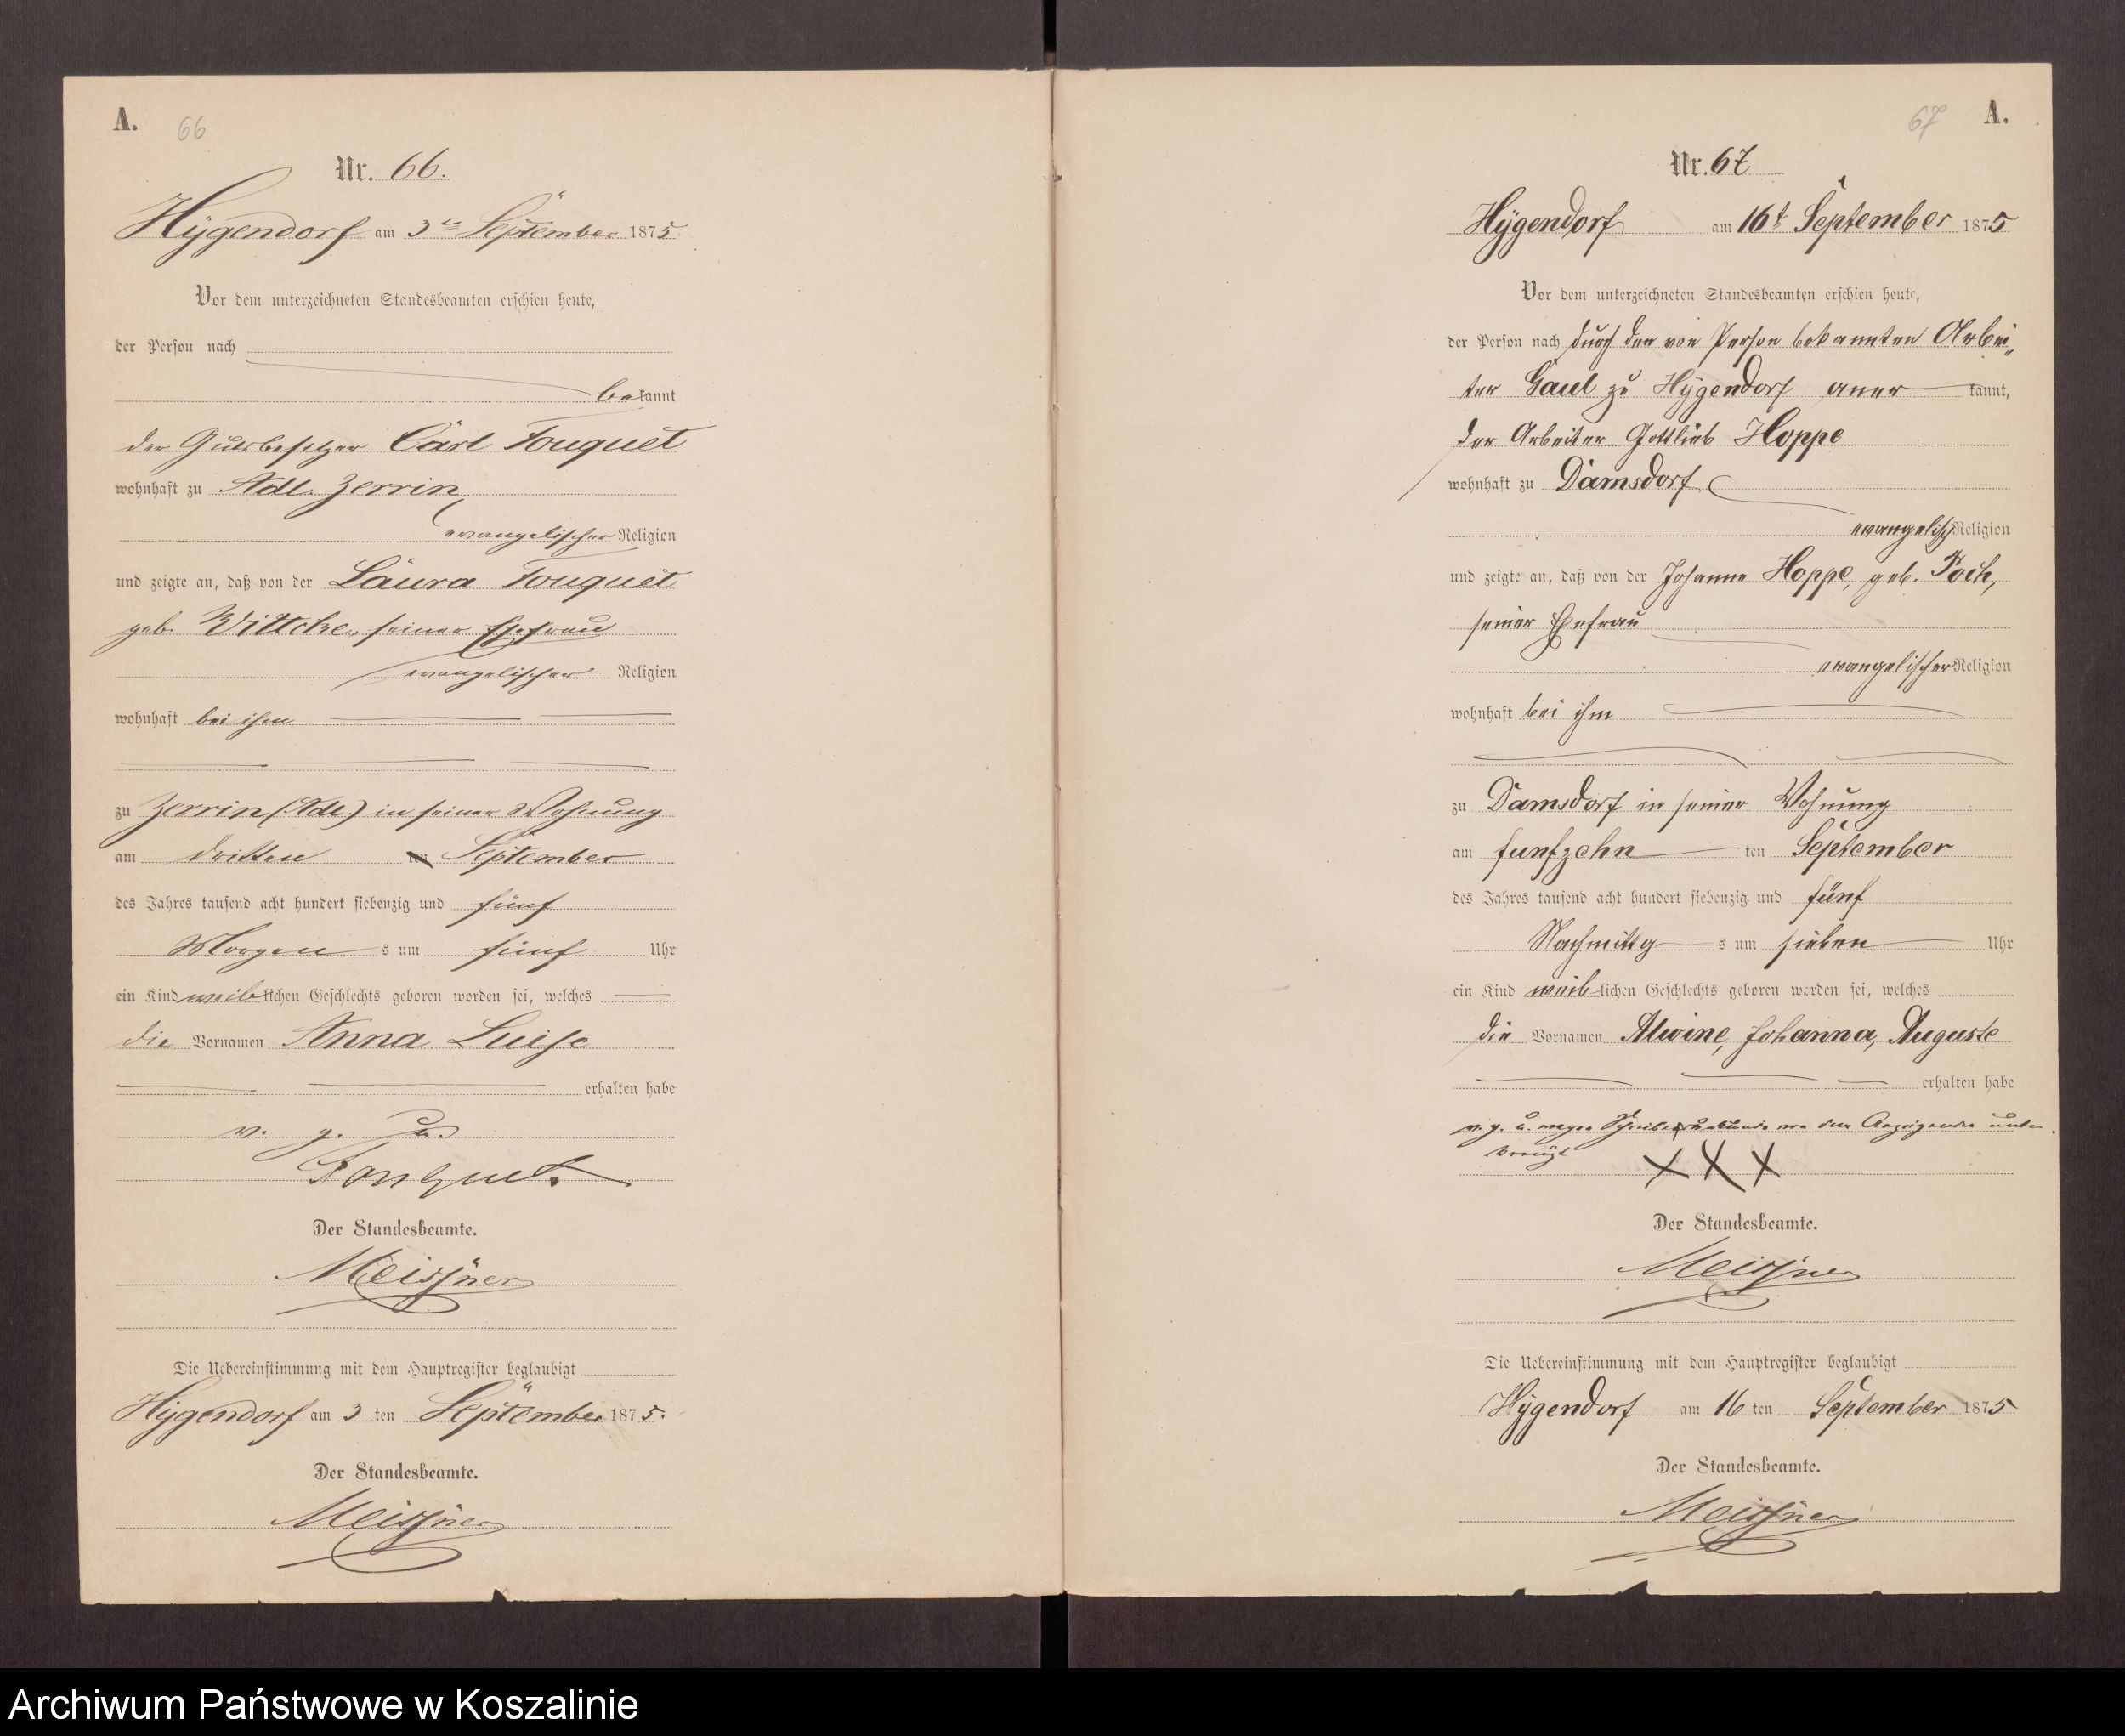 A.
66
Nr. 66.
Hygendorf am 3ten September 1875.
Vor dem unterzeichneten Standesbeamten erschien heute,
der Person nach
bekannt
der Gutsbesitzer Carl Fouquet
wohnhaft zu Adl. Zerrin,
evangelischer Religion
und zeigte an, daß von der Laura Fouquet
geb. Wittcke, seiner Ehefrau
evangelischer Religion
wohnhaft bei ihm
zu Zerrin (Adl) in seiner Wohnung
am dritten ten September
des Jahres tausend acht hundert siebenzig und fünf
Morgens um fünf Uhr
ein Kind weiblichen Geschlechts geboren worden sei, welches
die Vornamen Anna Luise
erhalten habe
v. g. u.
Fouquet.
Der Standesbeamte.
Meissner
Die Uebereinstimmung mit dem Hauptregister beglaubigt
Hygendorf am 3 ten September 1875.
Der Standesbeamte.
Meissner
67
A.
Nr. 67
Hygendorf am 16t September 1875
Vor dem unterzeichneten Standesbeamten erschien heute,
der Person nach durch den von Person bekannten Arbei-
ter Gaul zu Hygendorf anerkannt,
der Arbeiter Gottlieb Hoppe
wohnhaft zu Damsdorf
evangelisch Religion
und zeigte an, daß von der Johanne Hoppe, geb. Poch,
seiner Ehefrau
evangelischer Religion
wohnhaft bei ihm
zu Damsdorf in seiner Wohnung
am funfzehn ten September
des Jahres tausend acht hundert siebenzig und fünf
Nachmittgs um sieben Uhr
ein Kind weiblichen Geschlechts geboren worden sei, welches
die Vornamen Alwine, Johanna, Auguste
erhalten habe
v. g. u. wegen Schreibensunkunde von dem Anzeigenden unter
kreuzt
XXX
Der Standesbeamte.
Meissner
Die Uebereinstimmung mit dem Hauptregister beglaubigt
Hygendorf am 16 ten September 1875
Der Standesbeamte.
Meissner
Archiwum Państwowe w Koszalinie